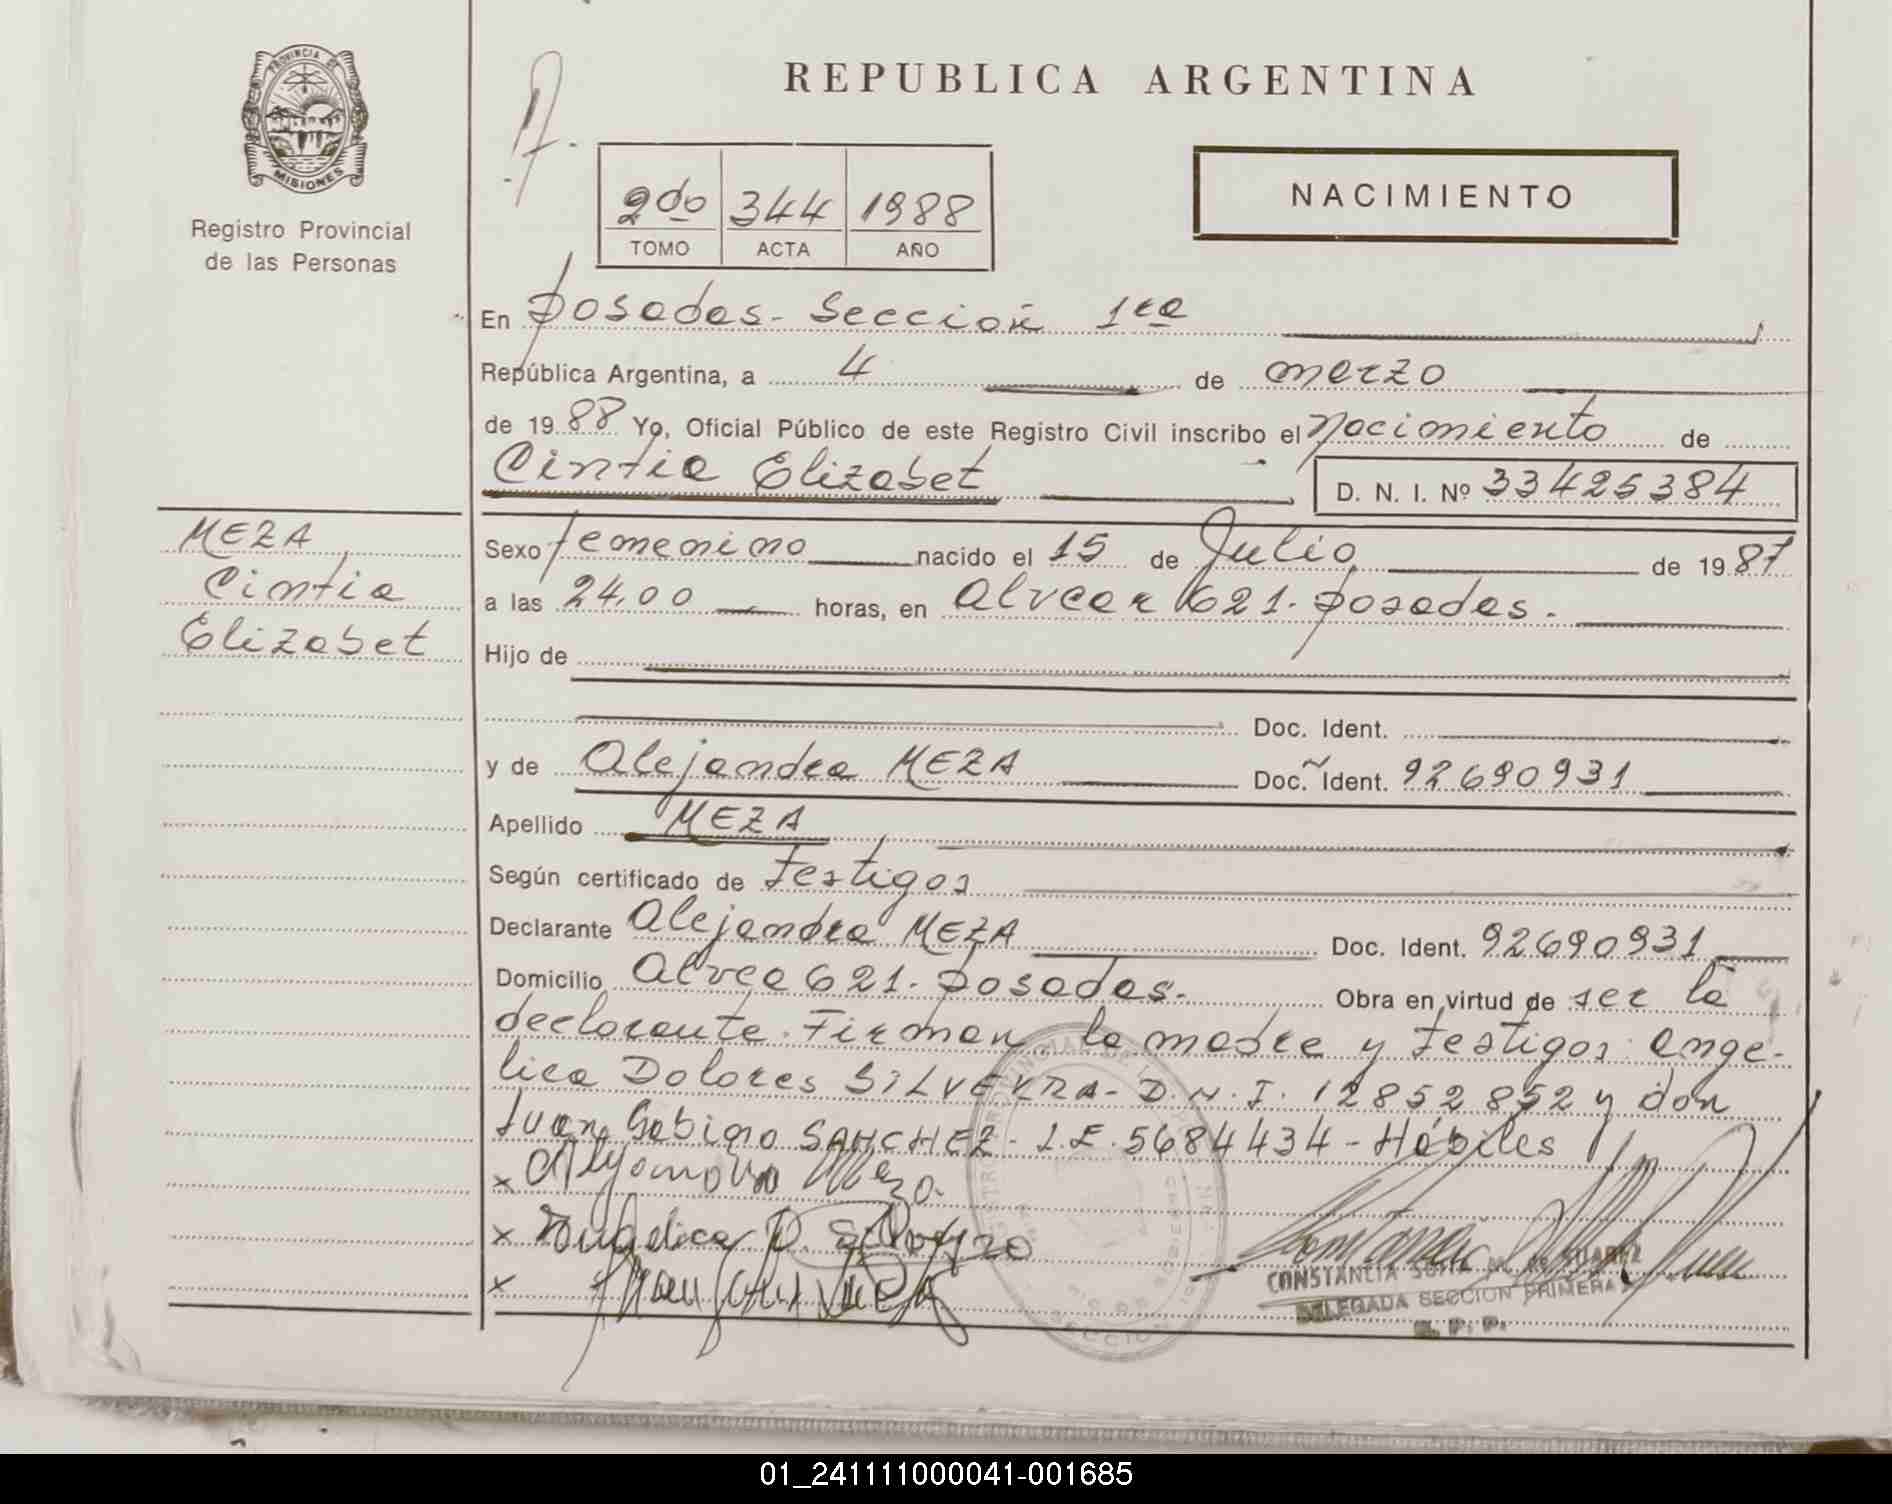 PROVINCIA DE
MISIONES
Registro Provincial
de las Personas
REPUBLICA ARGENTINA
2do 344 1988
TOMO ACTA AÑO
NACIMIENTO
En Posadas - Sección 1ra
República Argentina, a 4 de marzo
de 1988 Yo, Oficial Público de este Registro Civil inscribo el Nacimiento de
Cintia Elizabet D. N. I. Nº 33425384
MEZA
Cintia
Elizabet
Sexo femenino nacido el 15 de Julio de 1987
a las 24,00 horas, en Alvear 621. Posadas.
Hijo de
Doc. Ident.
y de Alejandra MEZA Doc. Ident. 92690931
Apellido MEZA
Según certificado de testigos
Declarante Alejandra MEZA Doc. Ident. 92690931
Domicilio Alvea 621. Posadas. Obra en virtud de ser la
declarante. Firman la madre y testigos: Ange-
lica Dolores SILVEYRA - D.N.I. 12852852 y don
Juan Gabino SANCHEZ - L.E. 5684434 - Hábiles
x Alejandra Meza
x Angelica D.
x
CONSTANCIA SUAREZ
DELEGADA SECCION PRIMERA
R. P. P.
01_241111000041-001685